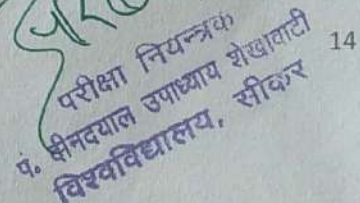 परीक्षा नियन्त्रक
पं. दीनदयाल उपाध्याय शेखावाटी
विश्वविद्यालय, सीकर
14